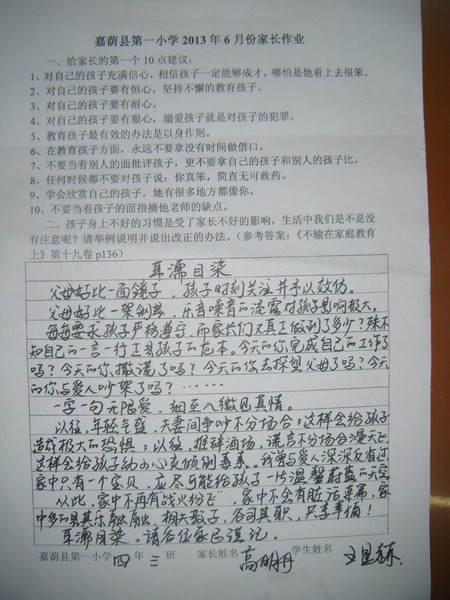 嘉荫县第一小学2013年6月份家长作业
一、给家长的第一个10点建议：
1、对自己的孩子充满信心，相信孩子一定能够成才，哪怕是他看上去很笨。
2、对自己的孩子要有恒心，坚持不懈的教育孩子。
3、对自己的孩子要有耐心。
4、对自己的孩子要有狠心，溺爱孩子就是对孩子的犯罪。
5、教育孩子最有效的办法是以身作则。
6、在教育孩子方面，永远不要拿没有时间做借口。
7、不要当着别人的面批评孩子，更不要拿自己的孩子和别人的孩子比。
8、任何时候都不要对孩子说：你真笨，简直无可救药。
9、学会欣赏自己的孩子，她有很多地方都像你。
10、不要当着孩子的面指摘他老师的缺点。
二、孩子身上不好的习惯是受了家长不好的影响，生活中我们是不是没
有注意呢？请举例说明并说出改正的办法。（参考答案：《不输在家庭教育
上》第十九卷 p136）
耳濡目染
父母好比一面镜子，孩子时刻关注并予以效仿。
父母好比一架钢琴，乐音噪音的流露对孩子影响极大。
每每要求孩子严格遵守，而家长们又真正做到了多少？殊不
知自己的一言一行正是孩子的范本。今天的你完成自己的工作了
吗？今天的你撒谎了吗？今天的你去探望父母了吗？今天
的你与爱人吵架了吗？……
一字一句无限爱，细至入微见真情。
以往，年轻气盛，夫妻间争吵不分场合；这样会给孩子
造成极大的恐惧；以往，推辞酒场，谎言不分场合漫天飞
这样会给孩子幼小心灵倾倒毒素。我曾与爱人深深反省过
家中只有一个宝贝，应尽可能给孩子一片温馨蔚蓝的天空
从此，家中不再有战火纷飞，家中不会有脏话
家中多的是其乐融融，相夫教子，各司其职，共享幸福！
耳濡目染，请各位家长谨记。
嘉荫县第一小学 四 年 三 班 家长姓名 高明丹 学生姓名